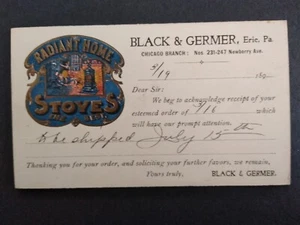 BLACK & GERMER, Erie, Pa.
CHICAGO BRANCH: Nos. 231-247 Newberry Ave.
RADIANT HOME
STOVES
5/19 189
Dear Sir:
We beg to acknowledge receipt of your
esteemed order of 5/16 which
will have our prompt attention.
To be shipped July 15th
Thanking you for your order, and soliciting your further favors, we remain,
Yours truly, BLACK & GERMER.